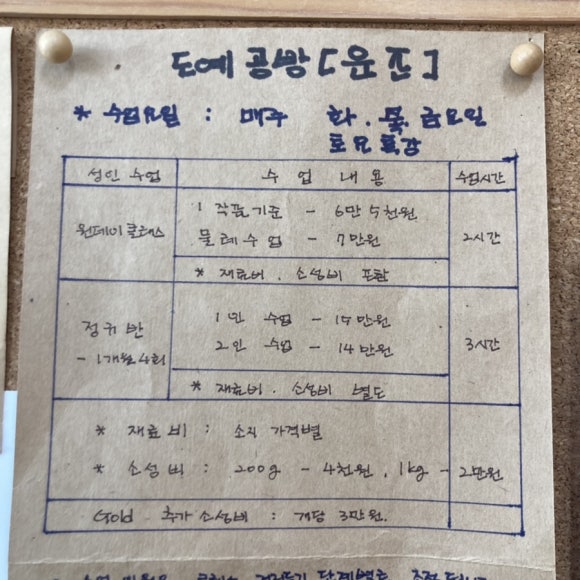 도예공방 [윤 즈]
* 수업요일 : 매주 화. 목. 금요일
토요특강
성인 수업 수 업 내 용 수업시간
원데이클래스 1 작품기준 - 6만 5천원
물레수업 - 7만원 2시간
* 재료비. 소성비 포함
정규반 1인 수업 - 15만원
- 1개월 4회 2인 수업 - 14만원 3시간
* 재료비. 소성비 별도
* 재료비 : 소지 가격별
* 소성비 : 200g - 4천원, 1kg - 2만원
Gold 추가소성비 : 개당 3만원.